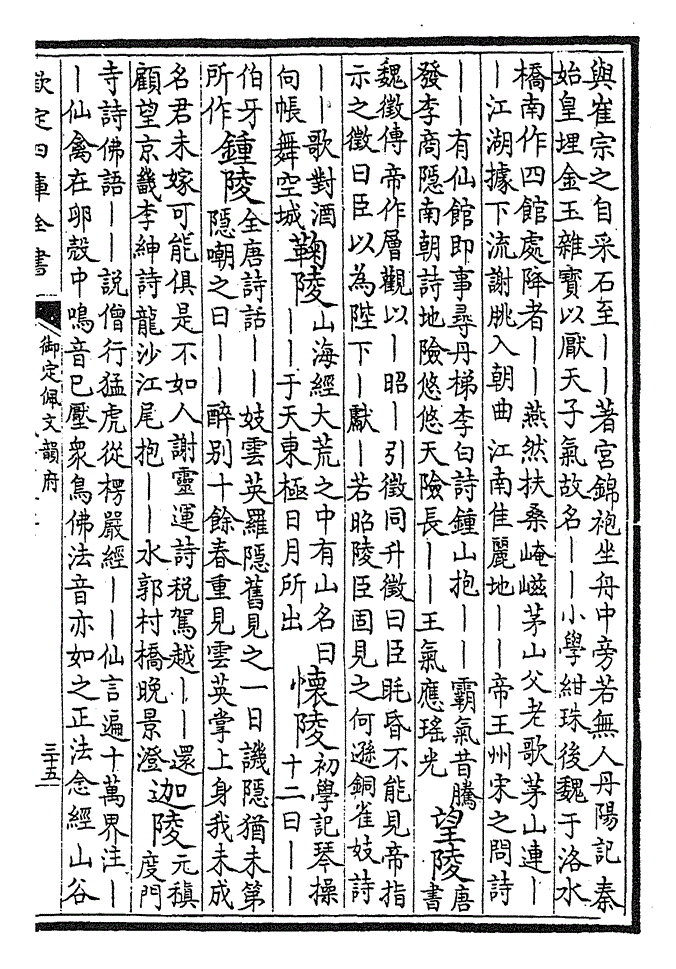 與崔宗之自采石至｜｜著宮錦袍坐舟中旁若無人丹陽記秦
始皇埋金玉雜寶以厭天子氣故名｜｜小學紺珠後魏于洛水
橋南作四館處降者｜｜燕然扶桑崦嵫茅山父老歌茅山連｜
｜江湖據下流謝朓入朝曲江南佳麗地｜｜帝王州宋之問詩
｜｜有仙館即事尋丹梯李白詩鍾山抱｜｜霸氣昔騰
發李商隱南朝詩地險悠悠天險長｜｜王氣應瑤光
望陵
唐
書
魏徵傳帝作層觀以｜昭｜引徵同升徵曰臣眊昏不能見帝指
示之徵曰臣以為陛下｜獻｜若昭陵臣固見之何遜銅雀妓詩
｜｜歌對酒
向帳舞空城
鞠陵
山海經大荒之中有山名曰
｜｜于天東極日月所出
懷陵
初學記琴操
十二曰｜｜
伯牙
所作
鍾陵
全唐詩話｜｜妓雲英羅隱舊見之一日譏隱猶未第
隱嘲之曰｜｜醉别十餘春重見雲英掌上身我未成
名君未嫁可能俱是不如人謝靈運詩税駕越｜｜還
顧望京畿李紳詩龍沙江尾抱｜｜水郭村橋晚景澄
迦陵
元稹
度門
寺詩佛語｜｜說僧行猛虎從楞嚴經｜｜仙言遍十萬界注｜
｜仙禽在卵殻中鳴音已壓衆鳥佛法音亦如之正法念經山谷
欽定四庫全書
御定佩文韻府
三十五